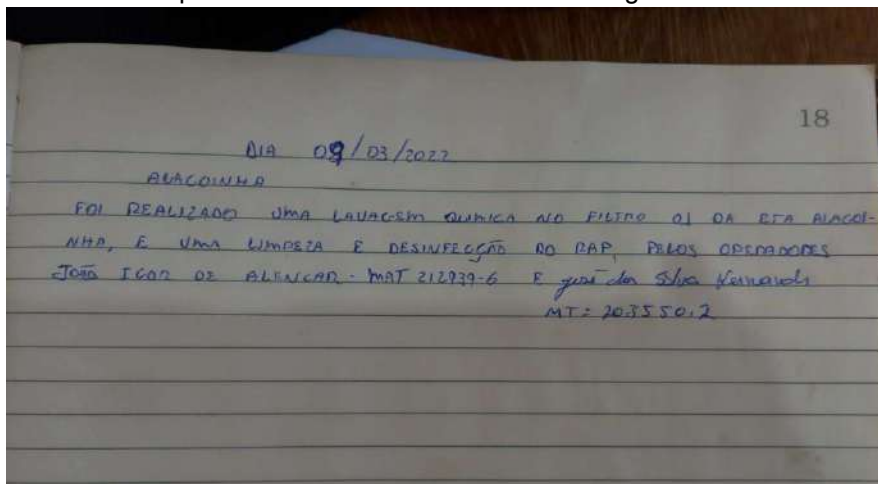 18
DIA 09/03/2022
ALAGOINHA
FOI REALIZADO UMA LAVAGEM QUIMICA NO FILTRO 01 DA ETA ALAGOI-
NHA, E UMA LIMPEZA E DESINFECÇÃO DO RAP, PELOS OPERADORES
João IGOR DE ALENCAR - MAT 212939-6 E José da Silva
MT: 203550.2